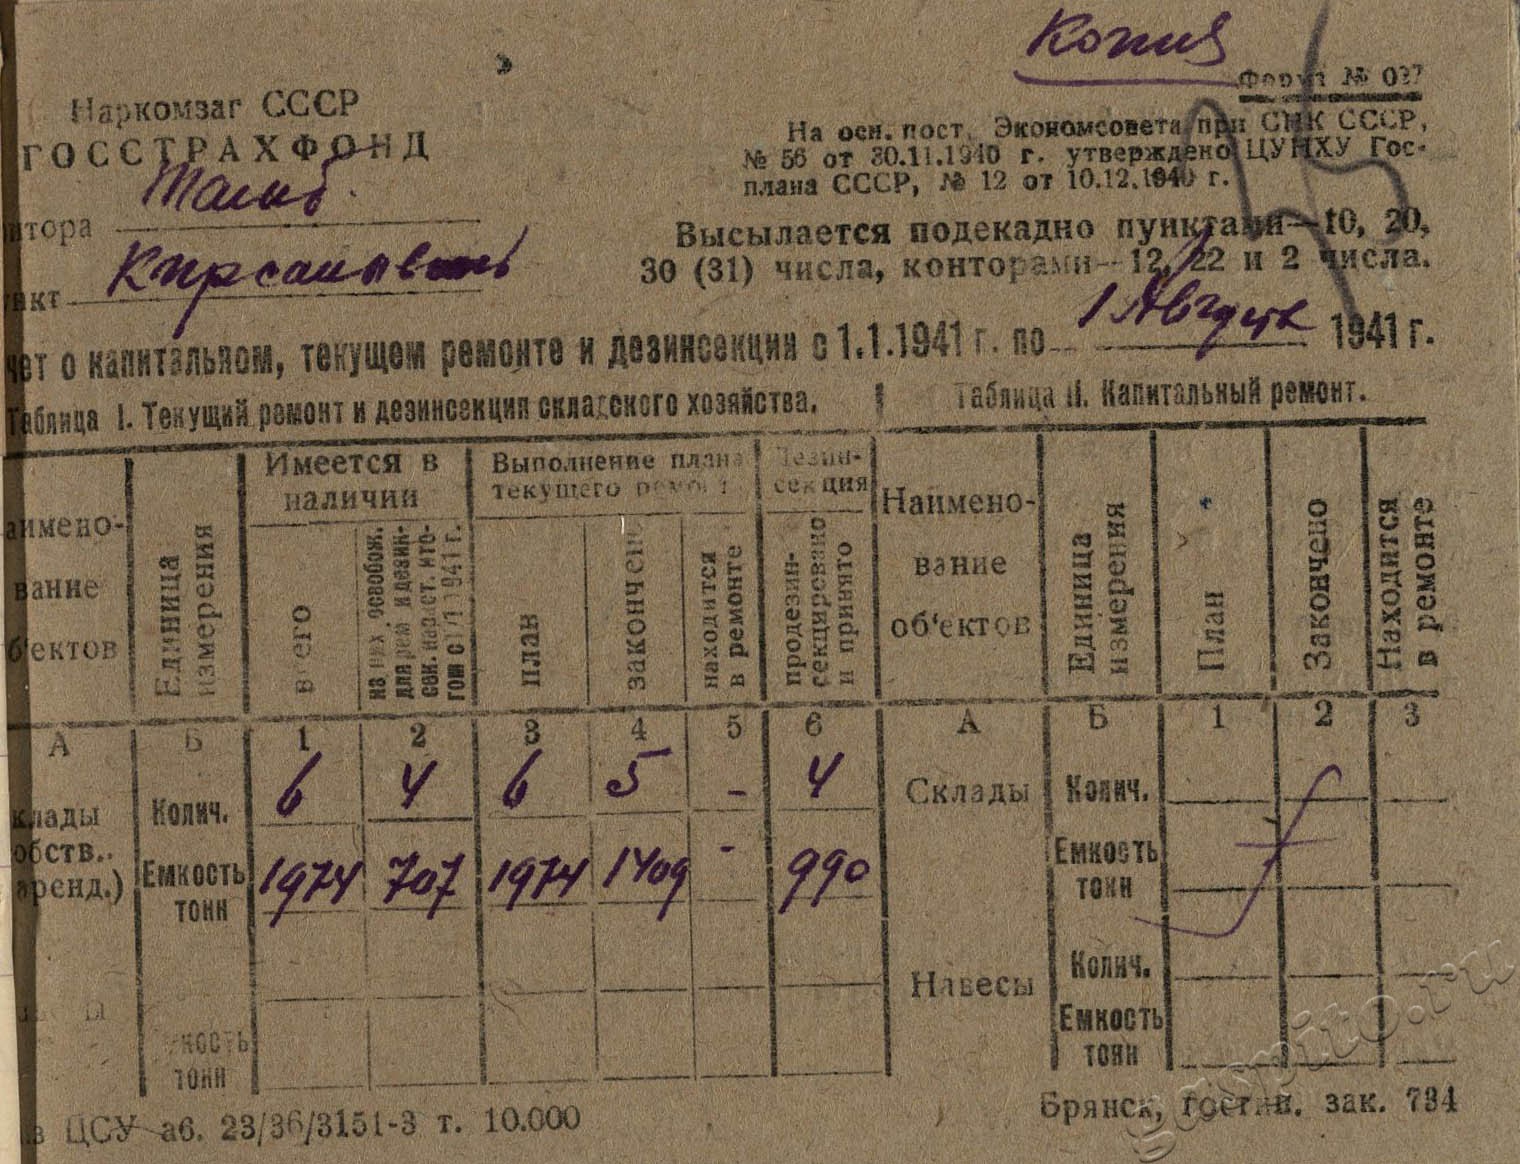 Копия
Форма № 037
Наркомзаг СССР
ГОССТРАХФОНД
На осн. пост. Экономсовета при СНК СССР,
№ 56 от 30.11.1940 г. утверждено ЦУНХУ Гос-
плана СССР, № 12 от 10.12.1940 г.
Тамб.
нтора
Высылается подекадно пунктами—10, 20,
30 (31) числа, конторами—12, 22 и 2 числа.
нкт
чет о капитальном, текущем ремонте и дезинсекции с 1.1.1941 г. по 1 Августа 1941 г.
Таблица I. Текущий ремонт и дезинсекция складского хозяйства.
Таблица II. Капитальный ремонт.
аимено-
вание
б'ектов
Единица
измерения
Имеется в
наличии
всего
из них освобож.
для рем. и дезин-
сек. нараст. ито-
гом с 1/I 1941 г.
Выполнение плана
текущего ремонт
план
закончено
находится
в ремонте
Дезин-
секция
продезин-
секцировано
и принято
Наимено-
вание
об'ектов
Единица
измерения
План
Закончено
Находится
в ремонте
А Б 1 2 3 4 5 6 А Б 1 2 3
клады
обств..
аренд.)
Колич. 6 4 6 5 - 4
Емкость
тонн
1974 707 1974 1409 - 990
Склады
Колич.
Емкость
тонн
Навесы
Колич.
Емкость
тонн
кость
тонн
ЦСУ аб. 23/36/3151-3 т. 10.000
Брянск, гостип. зак. 794
gaspito.ru